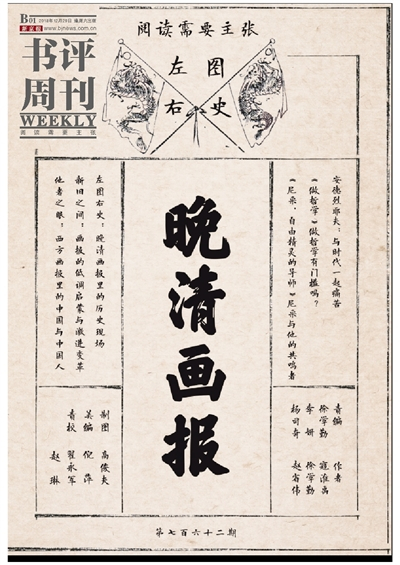 B01
2018年12月29日 星期六
新京报 www.bjnews.com.cn
书评
周刊
WEEKLY
阅读需要主张
阅读需要主张
左图
右史
安德烈耶夫：与时代一起痛苦
《做哲学》做哲学有门槛吗？
《尼采：自由精灵的导师》尼采与他的共鸣者
晚清画报
左图右史：晚清画报里的历史现场
新旧之间：画报的低调启蒙与激进变革
他者之眼：西方画报里的中国与中国人
责编 作者
徐学勤 寇淮禹
李妍 徐学勤
杨司奇 赵省伟
制图 高俊夫
美编 倪萍
责校 翟永军
赵琳
第七百六十二期